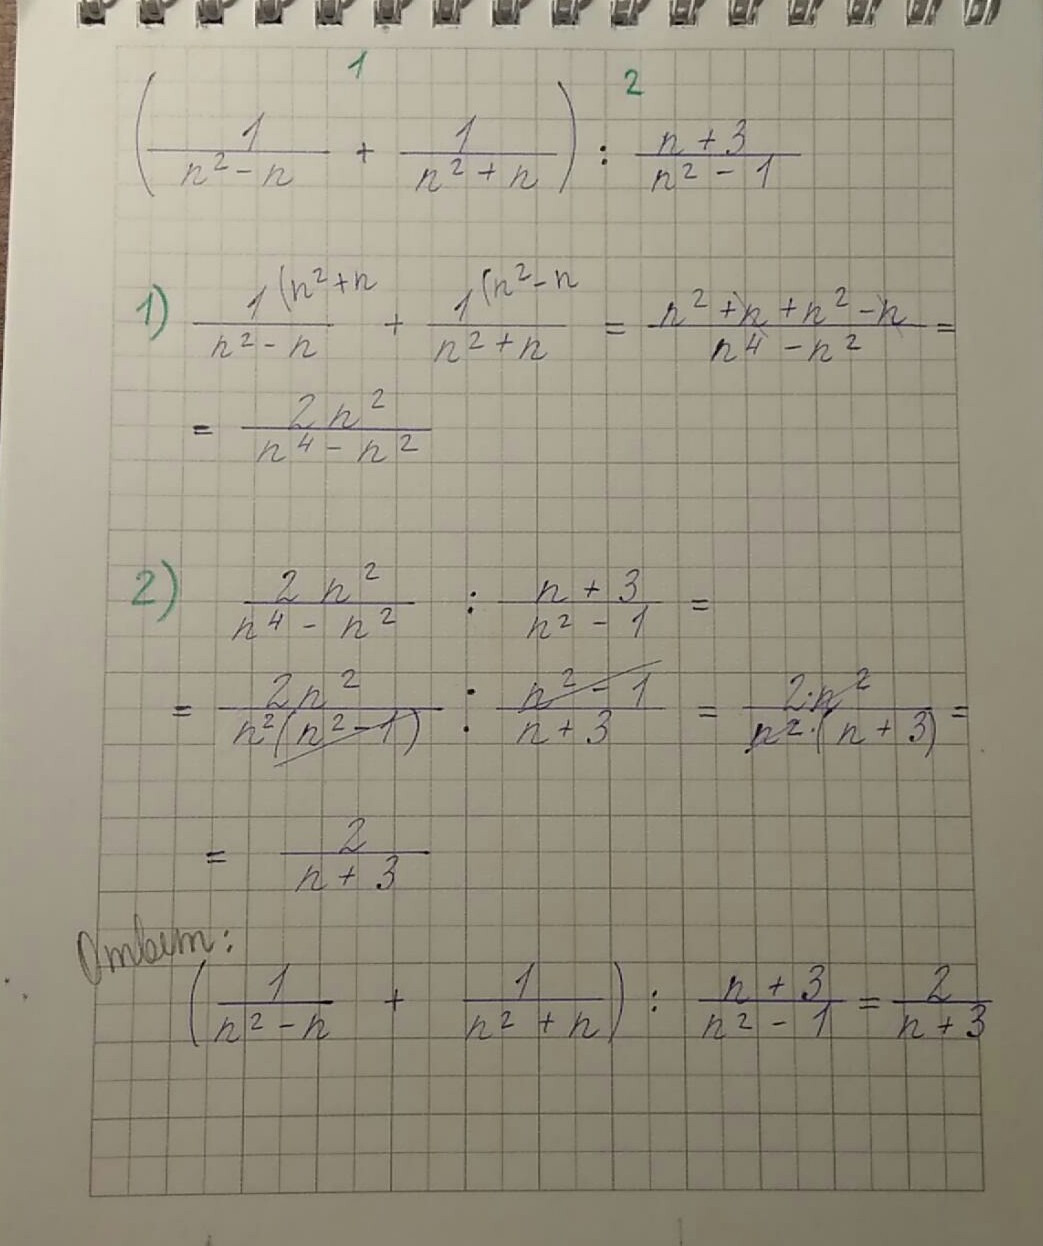 1 2
(1/(n² - n) + 1/(n² + n)) : (n + 3)/(n² - 1)
1) 1(n² + n/(n² - n) + 1(n² - n/(n² + n) = (n² + n + n² - n)/(n⁴ - n²) =
= 2n²/(n⁴ - n²)
2) 2n²/(n⁴ - n²) : (n + 3)/(n² - 1) =
= 2n²/(n²(n² - 1)) : (n² - 1)/(n + 3) = 2·n²/(n²·(n + 3)) =
= 2/(n + 3)
Ответ:
(1/(n² - n) + 1/(n² + n)) : (n + 3)/(n² - 1) = 2/(n + 3)